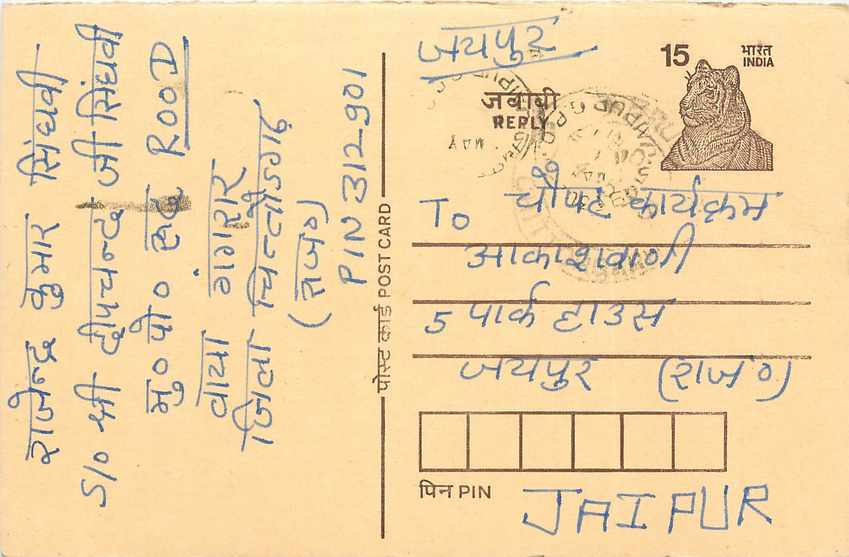 राजेन्द्र कुमार सिंघवी
S/o श्री दीपचन्द जी सिंघवी
मु०पो० रूद ROOD
वाया गंगरार
जिला चित्तौडगढ़
(राज०)
PIN 312901
पोस्ट कार्ड POST CARD
जयपुर
15
भारत
INDIA
जवाबी
REPLY
To चौपाट कार्यक्रम
आकाशवाणी
5 पार्क हाउस
जयपुर (राज०)
पिन PIN
JAIPUR